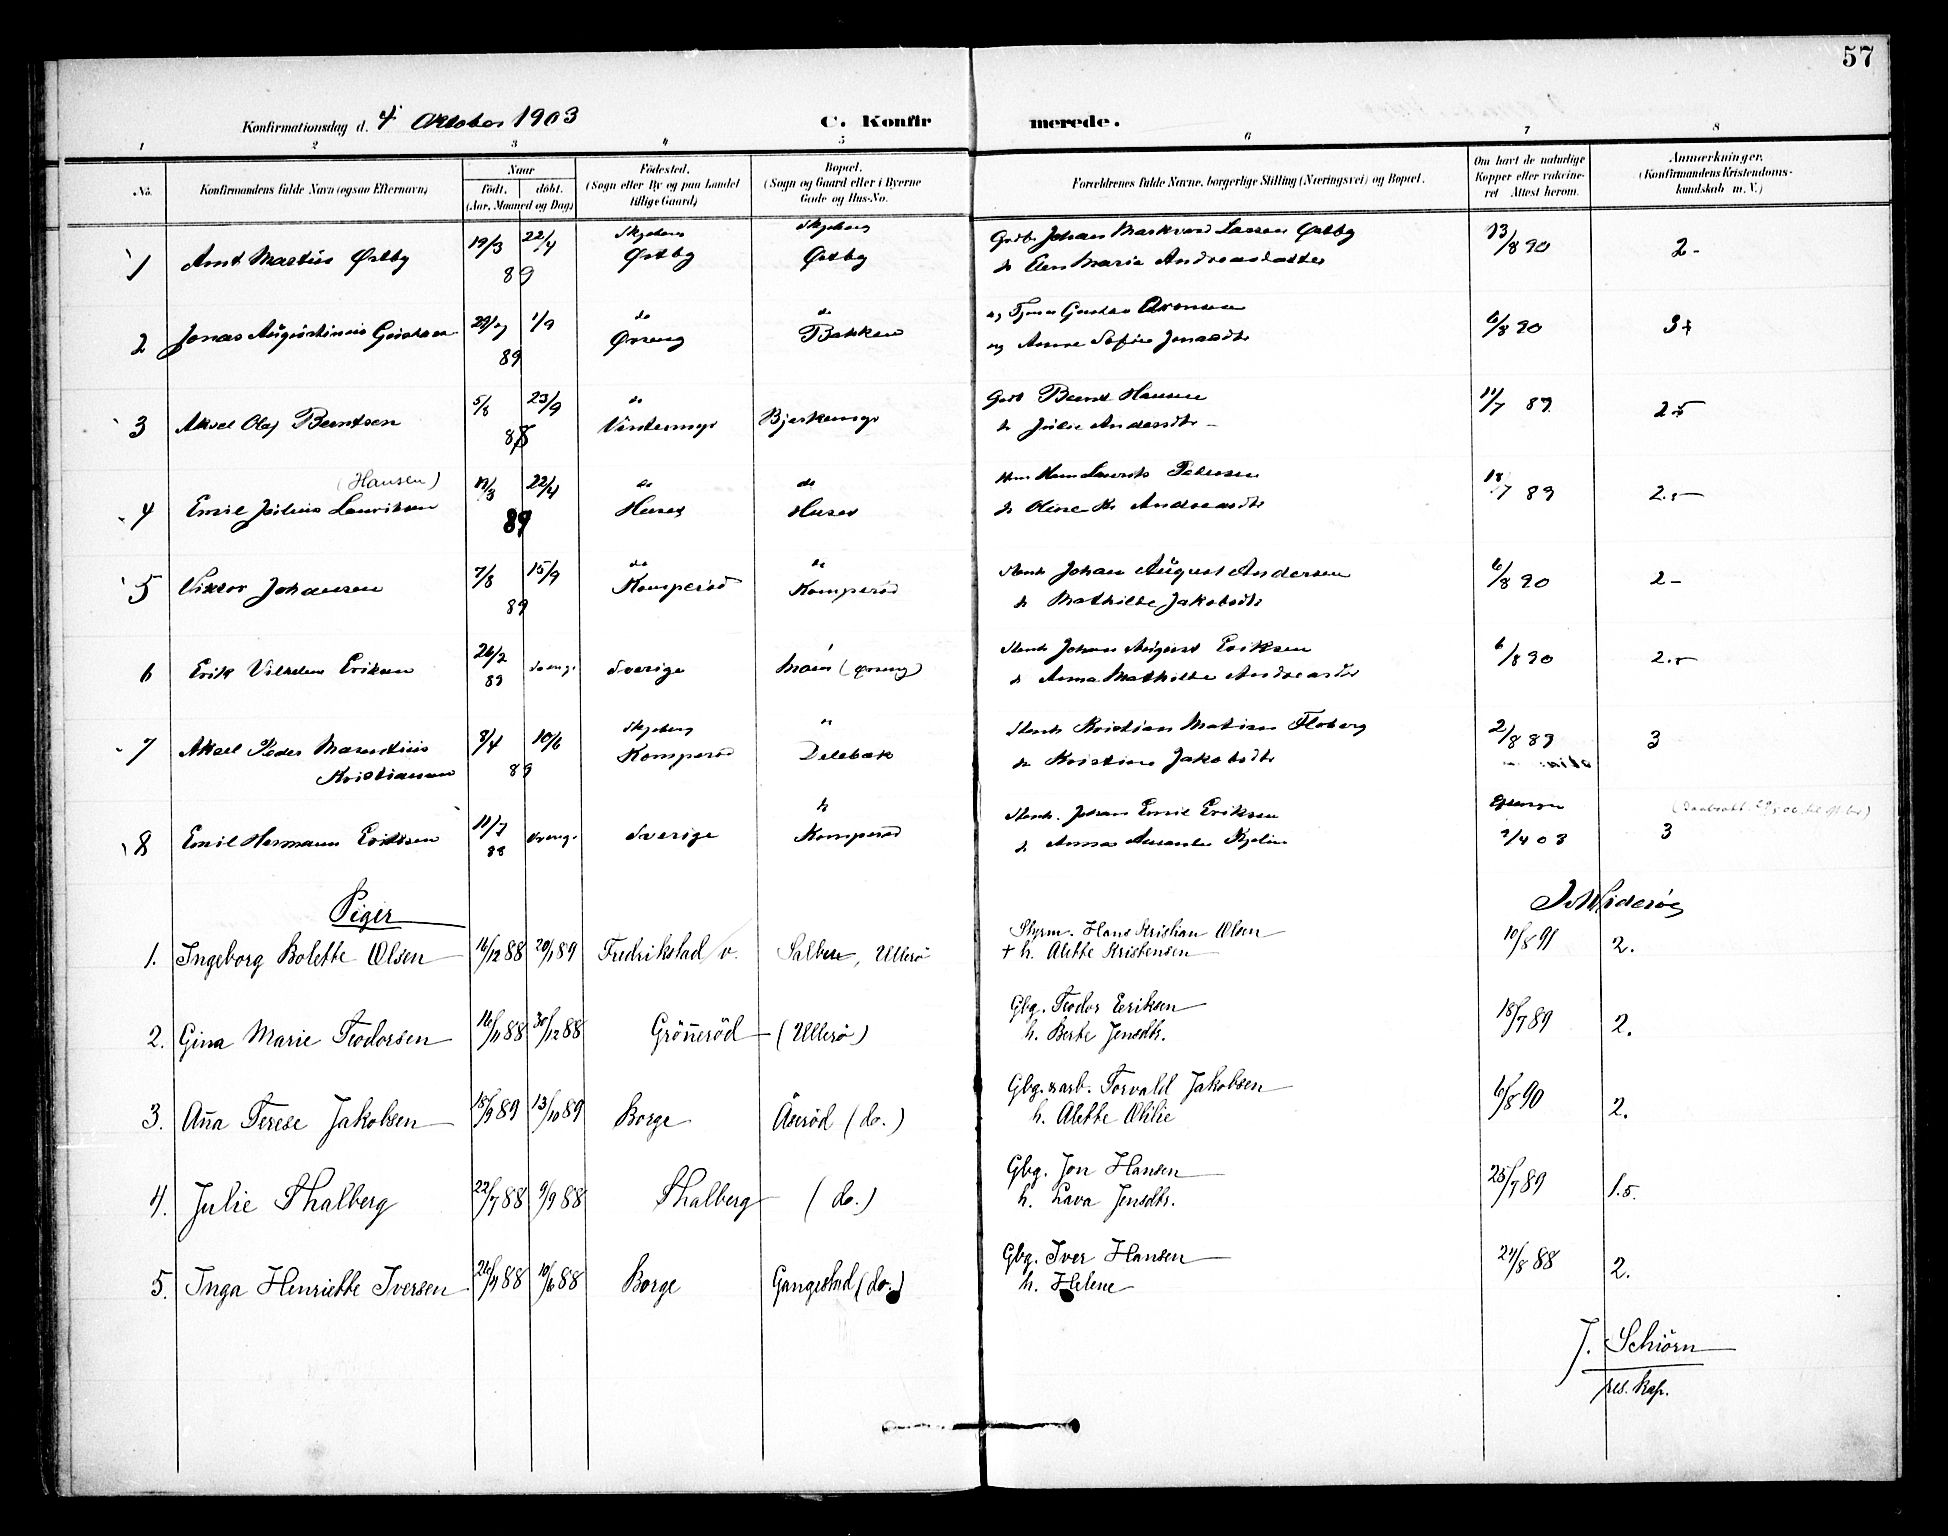 57
Konfirmationsdag d. 4 Oktober 1903 C. Konfirmerede.
1 2 3 4 5 6 7 8
No. Konfirmandens fulde Navn (ogsaa Efternavn) Naar født, døbt. (Aar, Maaned og Dag) Fødested. (Sogn eller By og paa Landet tillige Gaard) Bopæl. (Sogn og Gaard eller i Byerne Gade og Hus-No. Forældrenes fulde Navne, borgerlige Stilling (Næringsvei) og Bopæl. Om havt de naturlige Kopper eller vakcineret Attest herom. Anmærkninger. (Konfirmandens Kristendomskundskab m. V.)
1 Arnt Martin Østby 19/3 22/4 89 Skjeberg Østby Skjeberg Østby Johan Markvard Larsen Østby 13/8 90 2-
h Elen Marie Andreasdatter
2 Jonas Augustinus 29/7 1/9 89 do Øxeng do Bakken Gustav Aronsen 6/8 90 3+
og Anne Sofie Jonasdtr
3 Aksel Olaf Berntsen 5/8 23/9 88 do Vintermyr Bjerkemyr Bernt Hansen 11/7 89
h Julie Andersdtr
4 Emil Julius Lauritsen (Hansen) 19/3 22/4 89 do Huser do Huser Hans Laurits Petersen 18/7 89
h Oline Andreasdtr
5 Viktor Johansen 7/8 15/9 89 do Komperød do Komperød Stenh Johan August Andersen 6/8 90 2-
h Mathilde Jakobsdtr
6 Erik Vilhelm Eriksen 26/2 89 Sverige Sverige Stenh Johan August Eriksen 6/8 90
h Anna Mathilde Andreasdtr
7 Aksel Peder Marentius Kristiansen 8/4 10/6 89 Skjeberg Komperød Delebæk Stenh Kristian Matias Floberg 2/8 89 3
h Kristine Jakobsdtr
8 Emil Hermann Eriksen 11/7 88 Sverige Sverige Komperød Stenh. Johan Emil Eriksen 2/4 03 3
h Anna
J. Widerøe
Piger
1. Ingeborg Bolette Olsen 16/12 88 20/1 89 Fredrikstad v. Ullerø Styrm. Hans Kristian Olsen 10/8 91 2.
+ h. Alette Kristensen
2. Gina Marie Teodorsen 16/11 88 30/12 88 Grønnerød (Ullerø) Gbg. Teodor Eeriksen 18/7 89 2.
h. Berte Jensdtr.
3. Anna Terese Jakobsen 18/9 89 13/10 89 Borge Åserød (do.) Gbg. & arb. Torvald Jakobsen 6/8 90 2.
h. Alette Otilie
4. Julie Thalberg 22/7 88 9/9 88 Thalberg (do.) Gbg. Jon Hansen 25/7 89 1.5.
h. Lava Jensdtr.
5. Inga Henriette Iversen 26/4 88 10/6 88 Borge Gangestad (do.) Gbg. Iver Hansen 24/8 88 2.
h. Helene
J. Schiørn
res. kap.